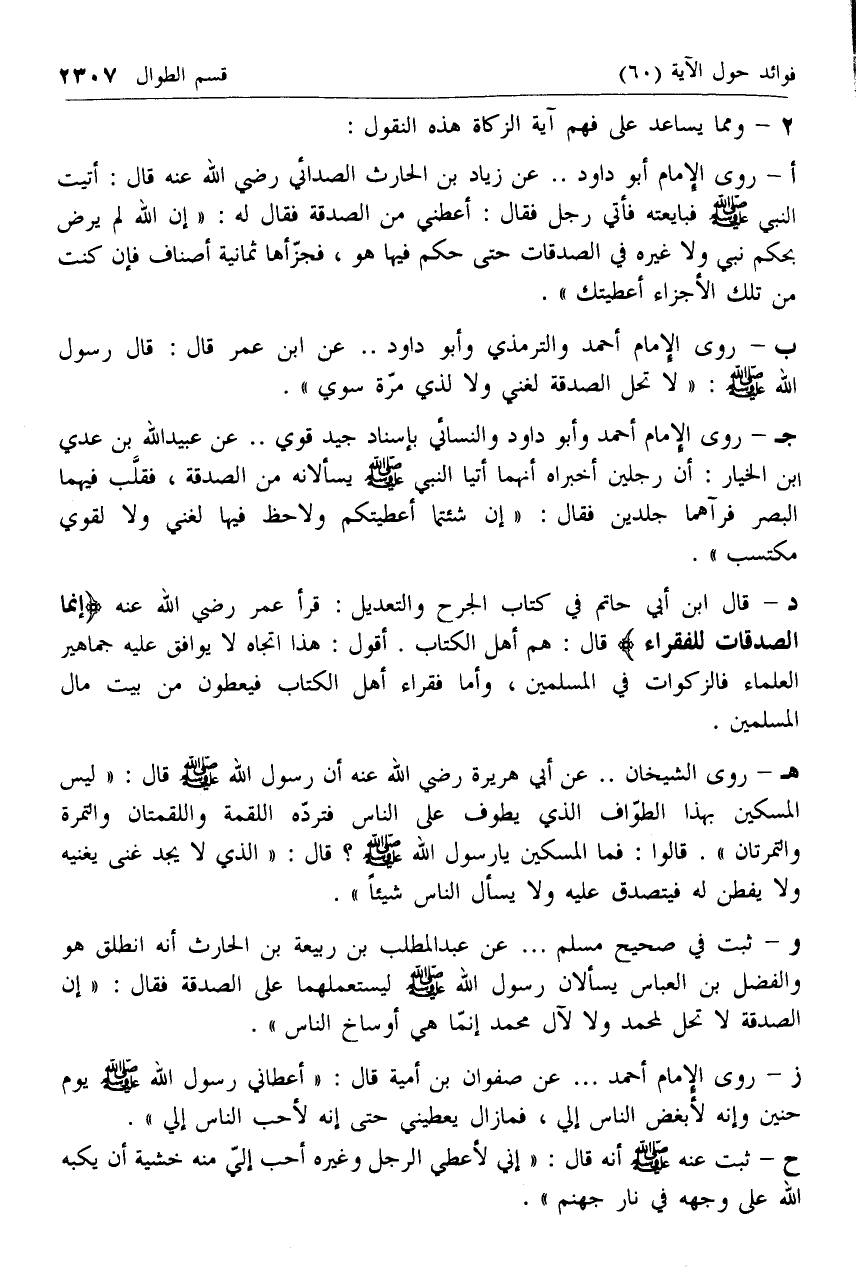 فوائد حول الآية (٦٠) قسم الطوال ٢٣٠٧
٢ - ومما يساعد على فهم آية الزكاة هذه النقول :
أ - روى الإمام أبو داود .. عن زياد بن الحارث الصدائي رضي الله عنه قال : أتيت
النبي ﷺ فبايعته فأتي رجل فقال : أعطني من الصدقة فقال له : « إن الله لم يرض
بحكم نبي ولا غيره في الصدقات حتى حكم فيها هو ، فجزّأها ثمانية أصناف فإن كنت
من تلك الأجزاء أعطيتك » .
ب - روى الإمام أحمد والترمذي وأبو داود .. عن ابن عمر قال : قال رسول
الله ﷺ : « لا تحل الصدقة لغني ولا لذي مرّة سوي » .
جـ - روى الإمام أحمد وأبو داود والنسائي بإسناد جيد قوي .. عن عبيدالله بن عدي
ابن الخيار : أن رجلين أخبراه أنهما أتيا النبي ﷺ يسألانه من الصدقة ، فقلَّب فيهما
البصر فرآهما جلدين فقال : « إن شئتما أعطيتكم ولاحظ فيها لغني ولا لقوي
مكتسب » .
د - قال ابن أبي حاتم في كتاب الجرح والتعديل : قرأ عمر رضي الله عنه ﴿إنما
الصدقات للفقراء ﴾ قال : هم أهل الكتاب . أقول : هذا اتجاه لا يوافق عليه جماهير
العلماء فالزكوات في المسلمين ، وأما فقراء أهل الكتاب فيعطون من بيت مال
المسلمين .
هـ - روى الشيخان .. عن أبي هريرة رضي الله عنه أن رسول الله ﷺ قال : « ليس
المسكين بهذا الطوّاف الذي يطوف على الناس فتردّه اللقمة واللقمتان والتمرة
والتمرتان » . قالوا : فما المسكين يارسول الله ﷺ ؟ قال : « الذي لا يجد غنى يغنيه
ولا يفطن له فيتصدق عليه ولا يسأل الناس شيئاً » .
و - ثبت في صحيح مسلم ... عن عبدالمطلب بن ربيعة بن الحارث أنه انطلق هو
والفضل بن العباس يسألان رسول الله ﷺ ليستعملهما على الصدقة فقال : « إن
الصدقة لا تحل لمحمد ولا لآل محمد إنمّا هي أوساخ الناس » .
ز - روى الإمام أحمد ... عن صفوان بن أمية قال : « أعطاني رسول الله ﷺ يوم
حنين وإنه لأبغض الناس إلي ، فمازال يعطيني حتى إنه لأحب الناس إلي » .
ح - ثبت عنه ﷺ أنه قال : « إني لأعطي الرجل وغيره أحب إليّ منه خشية أن يكبه
الله على وجهه في نار جهنم » .